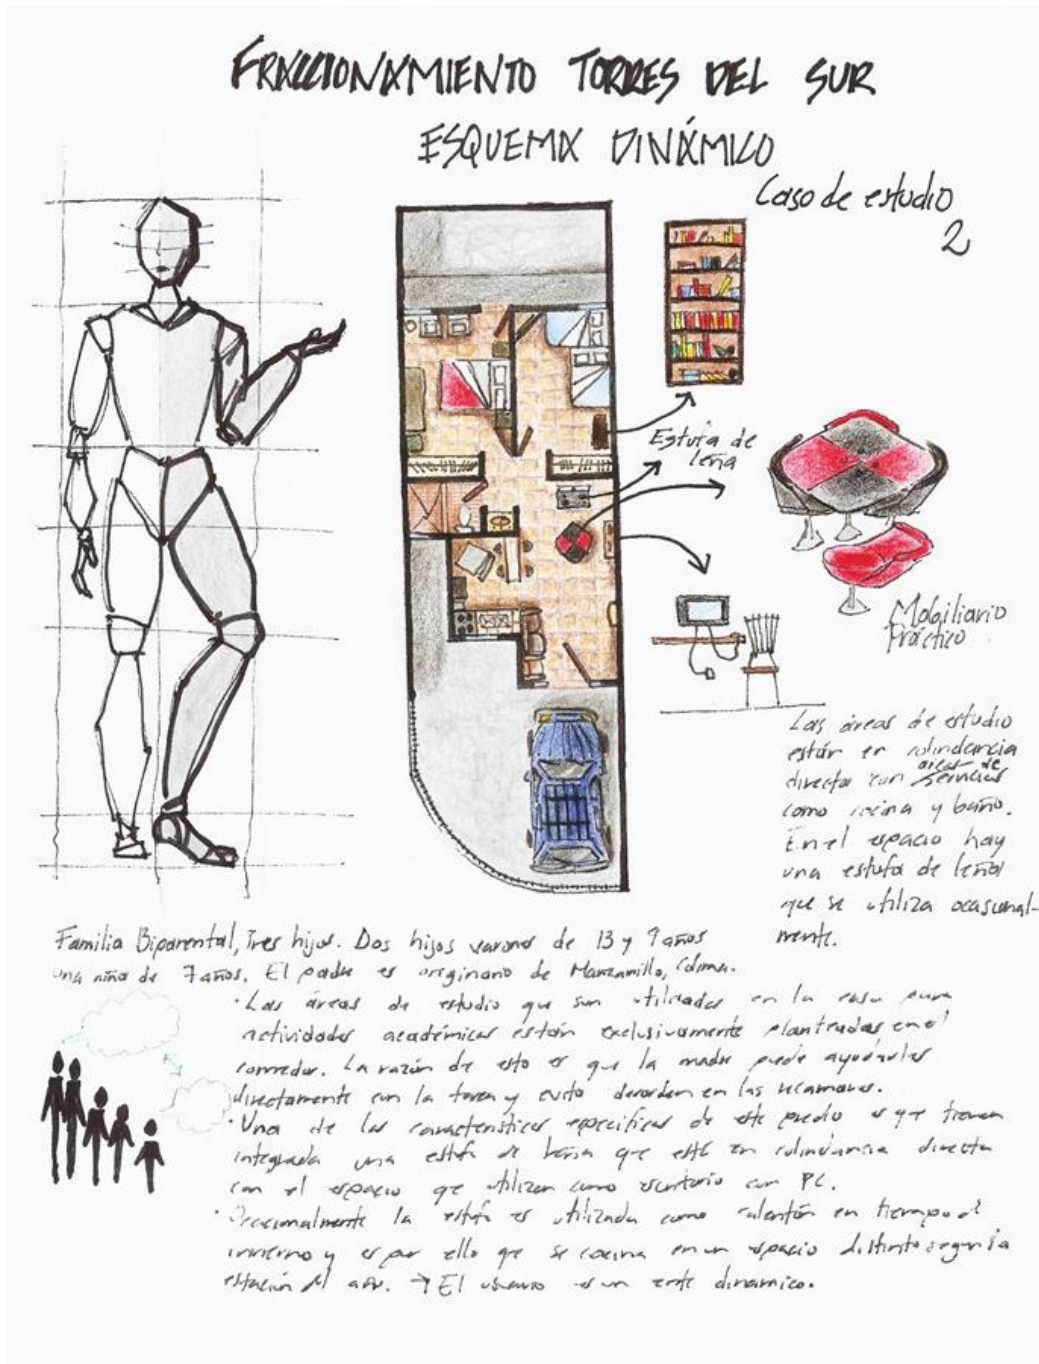 FRACCIONAMIENTO TORRES DEL SUR
ESQUEMA DINÁMICO
Caso de estudio
2
Estufa de
leña
Mobiliario
Práctico
Las áreas de estudio
están en colindancia
directa con áreas de servicios
como cocina y baño.
En el espacio hay
una estufa de leña
que se utiliza ocasional-
mente.
Familia Biparental, Tres hijos. Dos hijos varones de 13 y 9 años
una niña de 7 años. El padre es originario de Manzanillo, Colima.
· Las áreas de estudio que son utilizadas en la casa para
actividades académicas están exclusivamente planteadas en el
comedor. La razón de esto es que la madre puede ayudarles
directamente con la tarea y evita desorden en las recamaras.
· Una de las características específicas de este predio es que tienen
integrada una estufa de leña que está en colindancia directa
con el espacio que utilizan como escritorio con PC.
· Ocasionalmente la estufa es utilizada como calentón en tiempo de
invierno y es por ello que se cocina en un espacio distinto según la
estación del año. → El usuario es un ente dinamico.